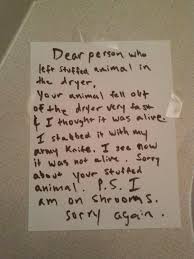 Dear person who
left stuffed animal in
the dryer,
Your animal fell out
of the dryer very fast
& I thought it was alive.
I stabbed it with my
army knife. I see now
it was not alive. Sorry
about your stuffed
animal. P.S. I
am on shrooms.
Sorry again.